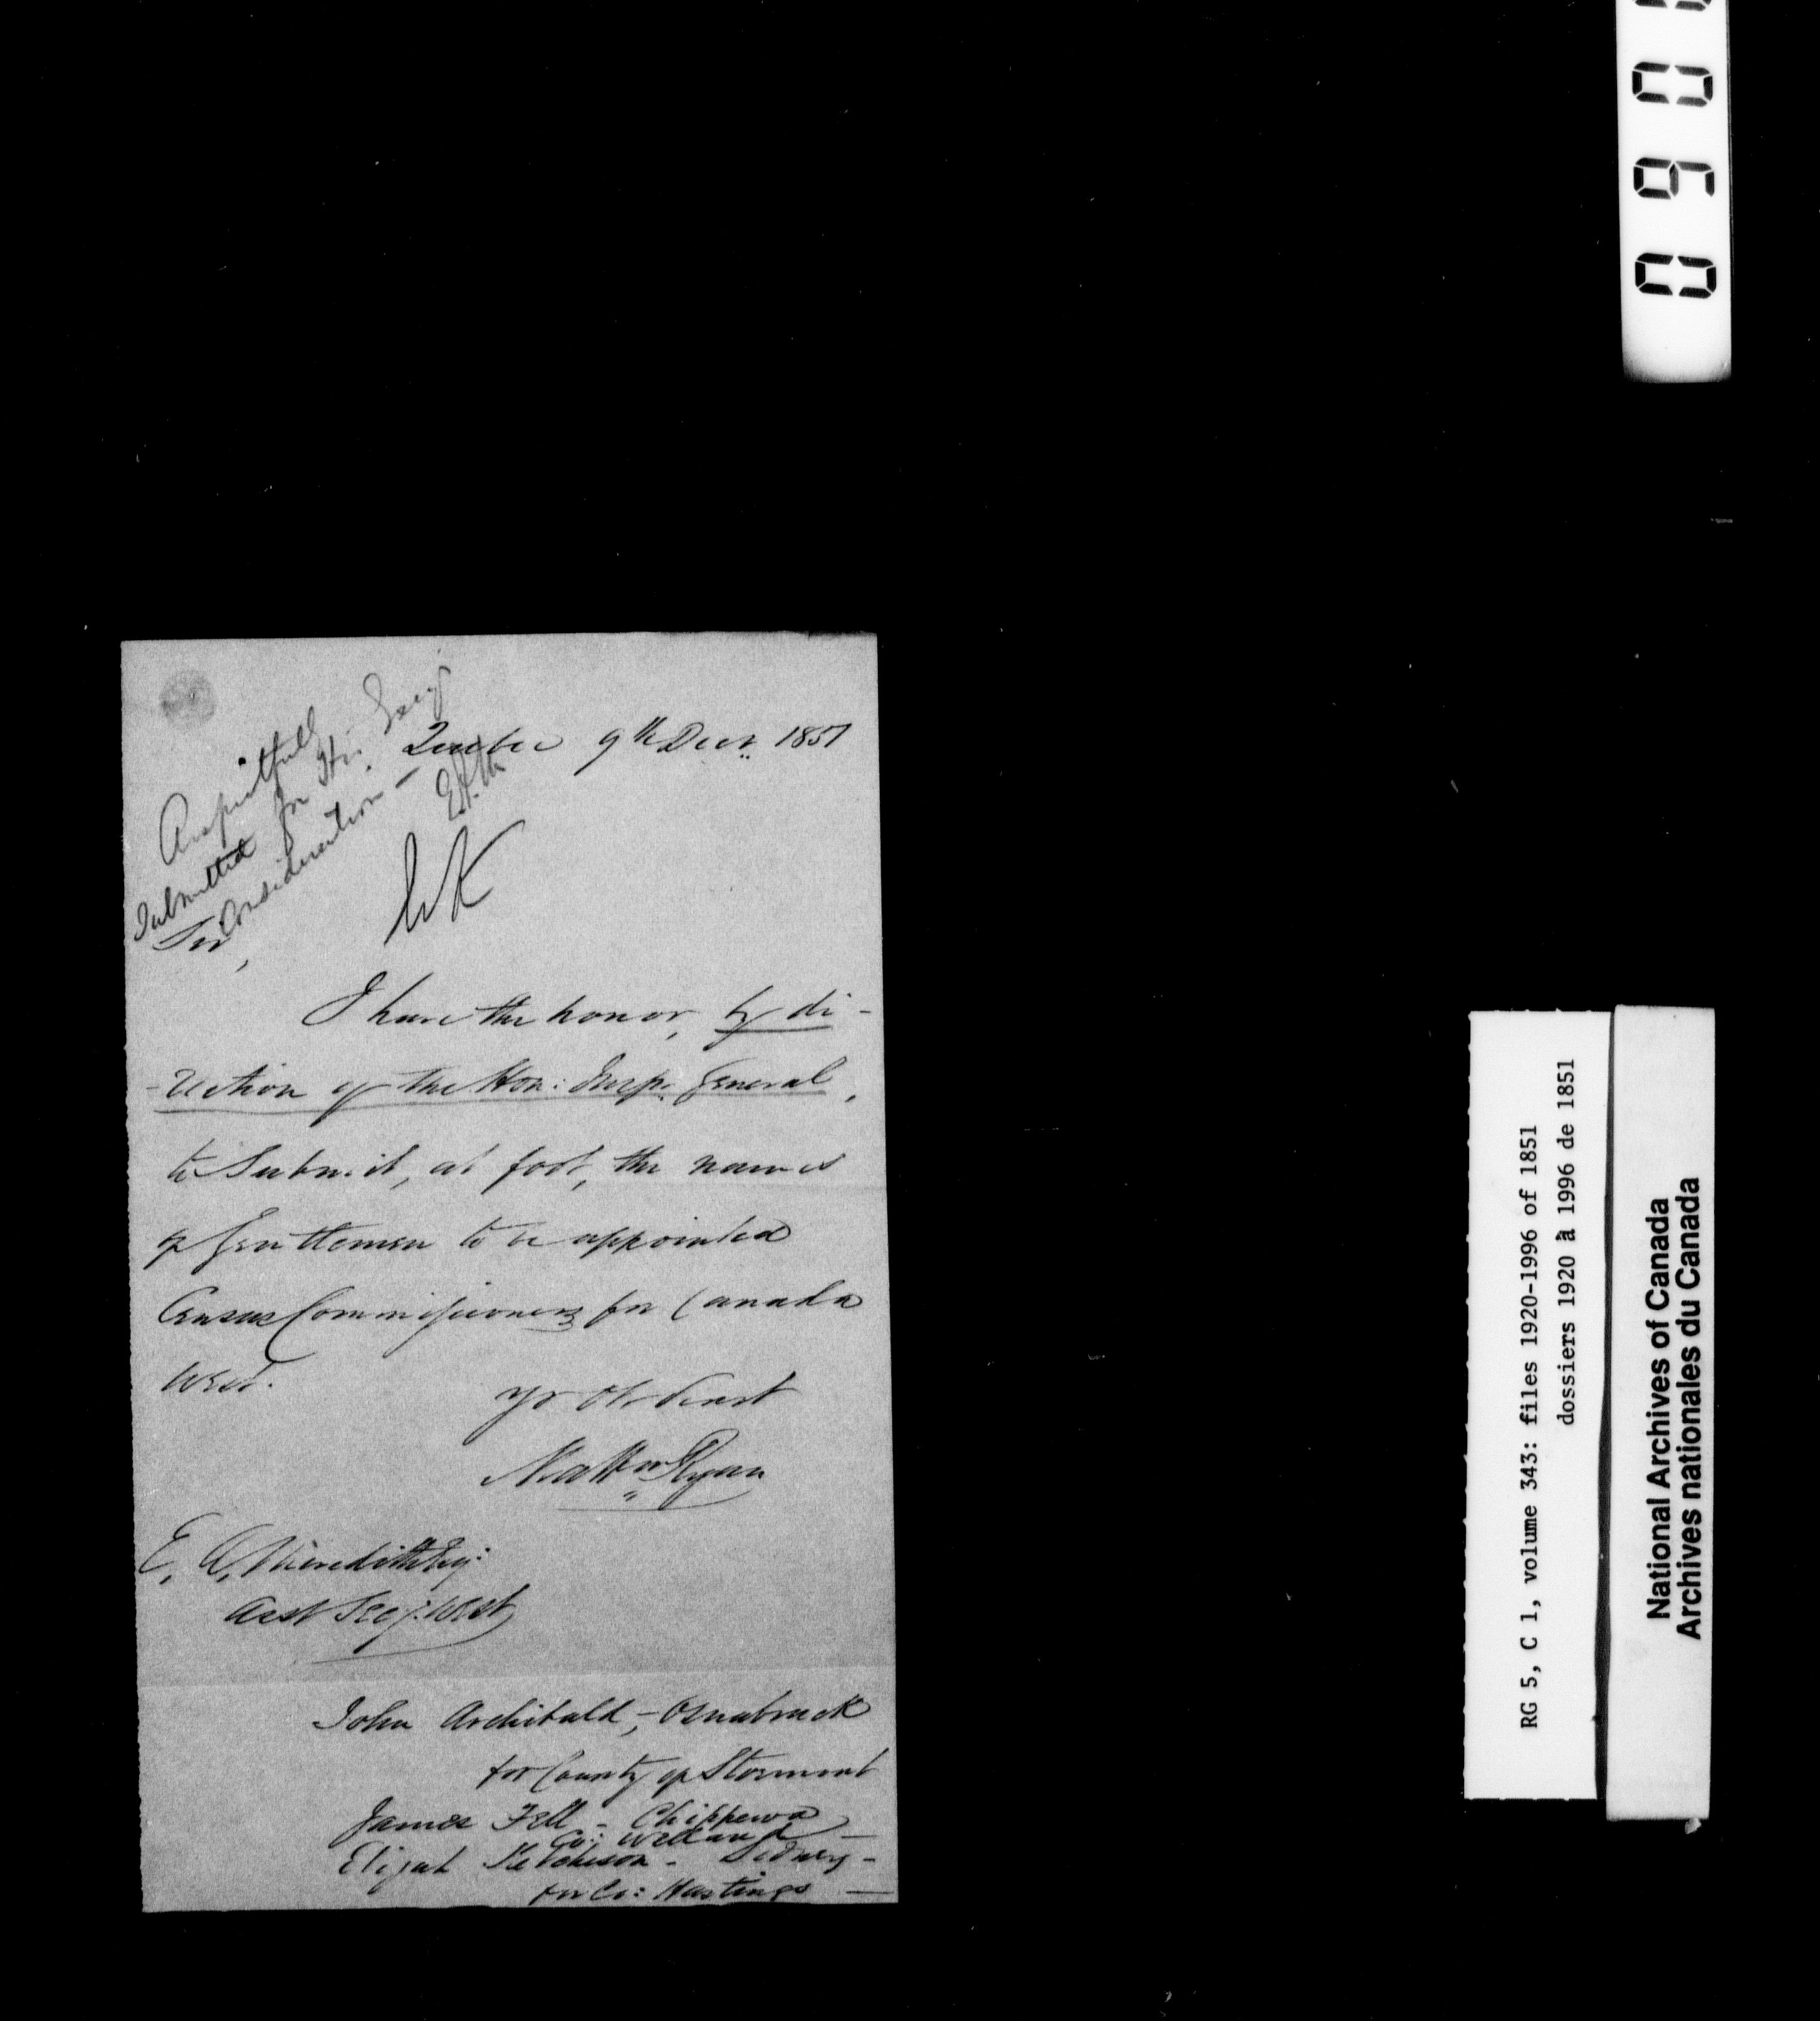 Respectfully
Submitted for His Excy's
Consideration —
E.A.M.
Quebec 9th Decr. 1851
Sir,
I have the honor, by di-
-rection of the Hon: Insp. General,
to Submit, at foot, the names
of Gentlemen to be appointed
Census Commissioners for Canada
West.
Yr Ob Servt
Matthw Ryan
E. A. Meredith Esq:
Asst Secy: West
John Archibald, - Osnabruck
for County of Stormont
James Fell - Chippewa
Co: Welland —
Elijah Ketcheson - Sidney -
for Co: Hastings —
RG 5, C 1, volume 343: files 1920-1996 of 1851
dossiers 1920 à 1996 de 1851
National Archives of Canada
Archives nationales du Canada